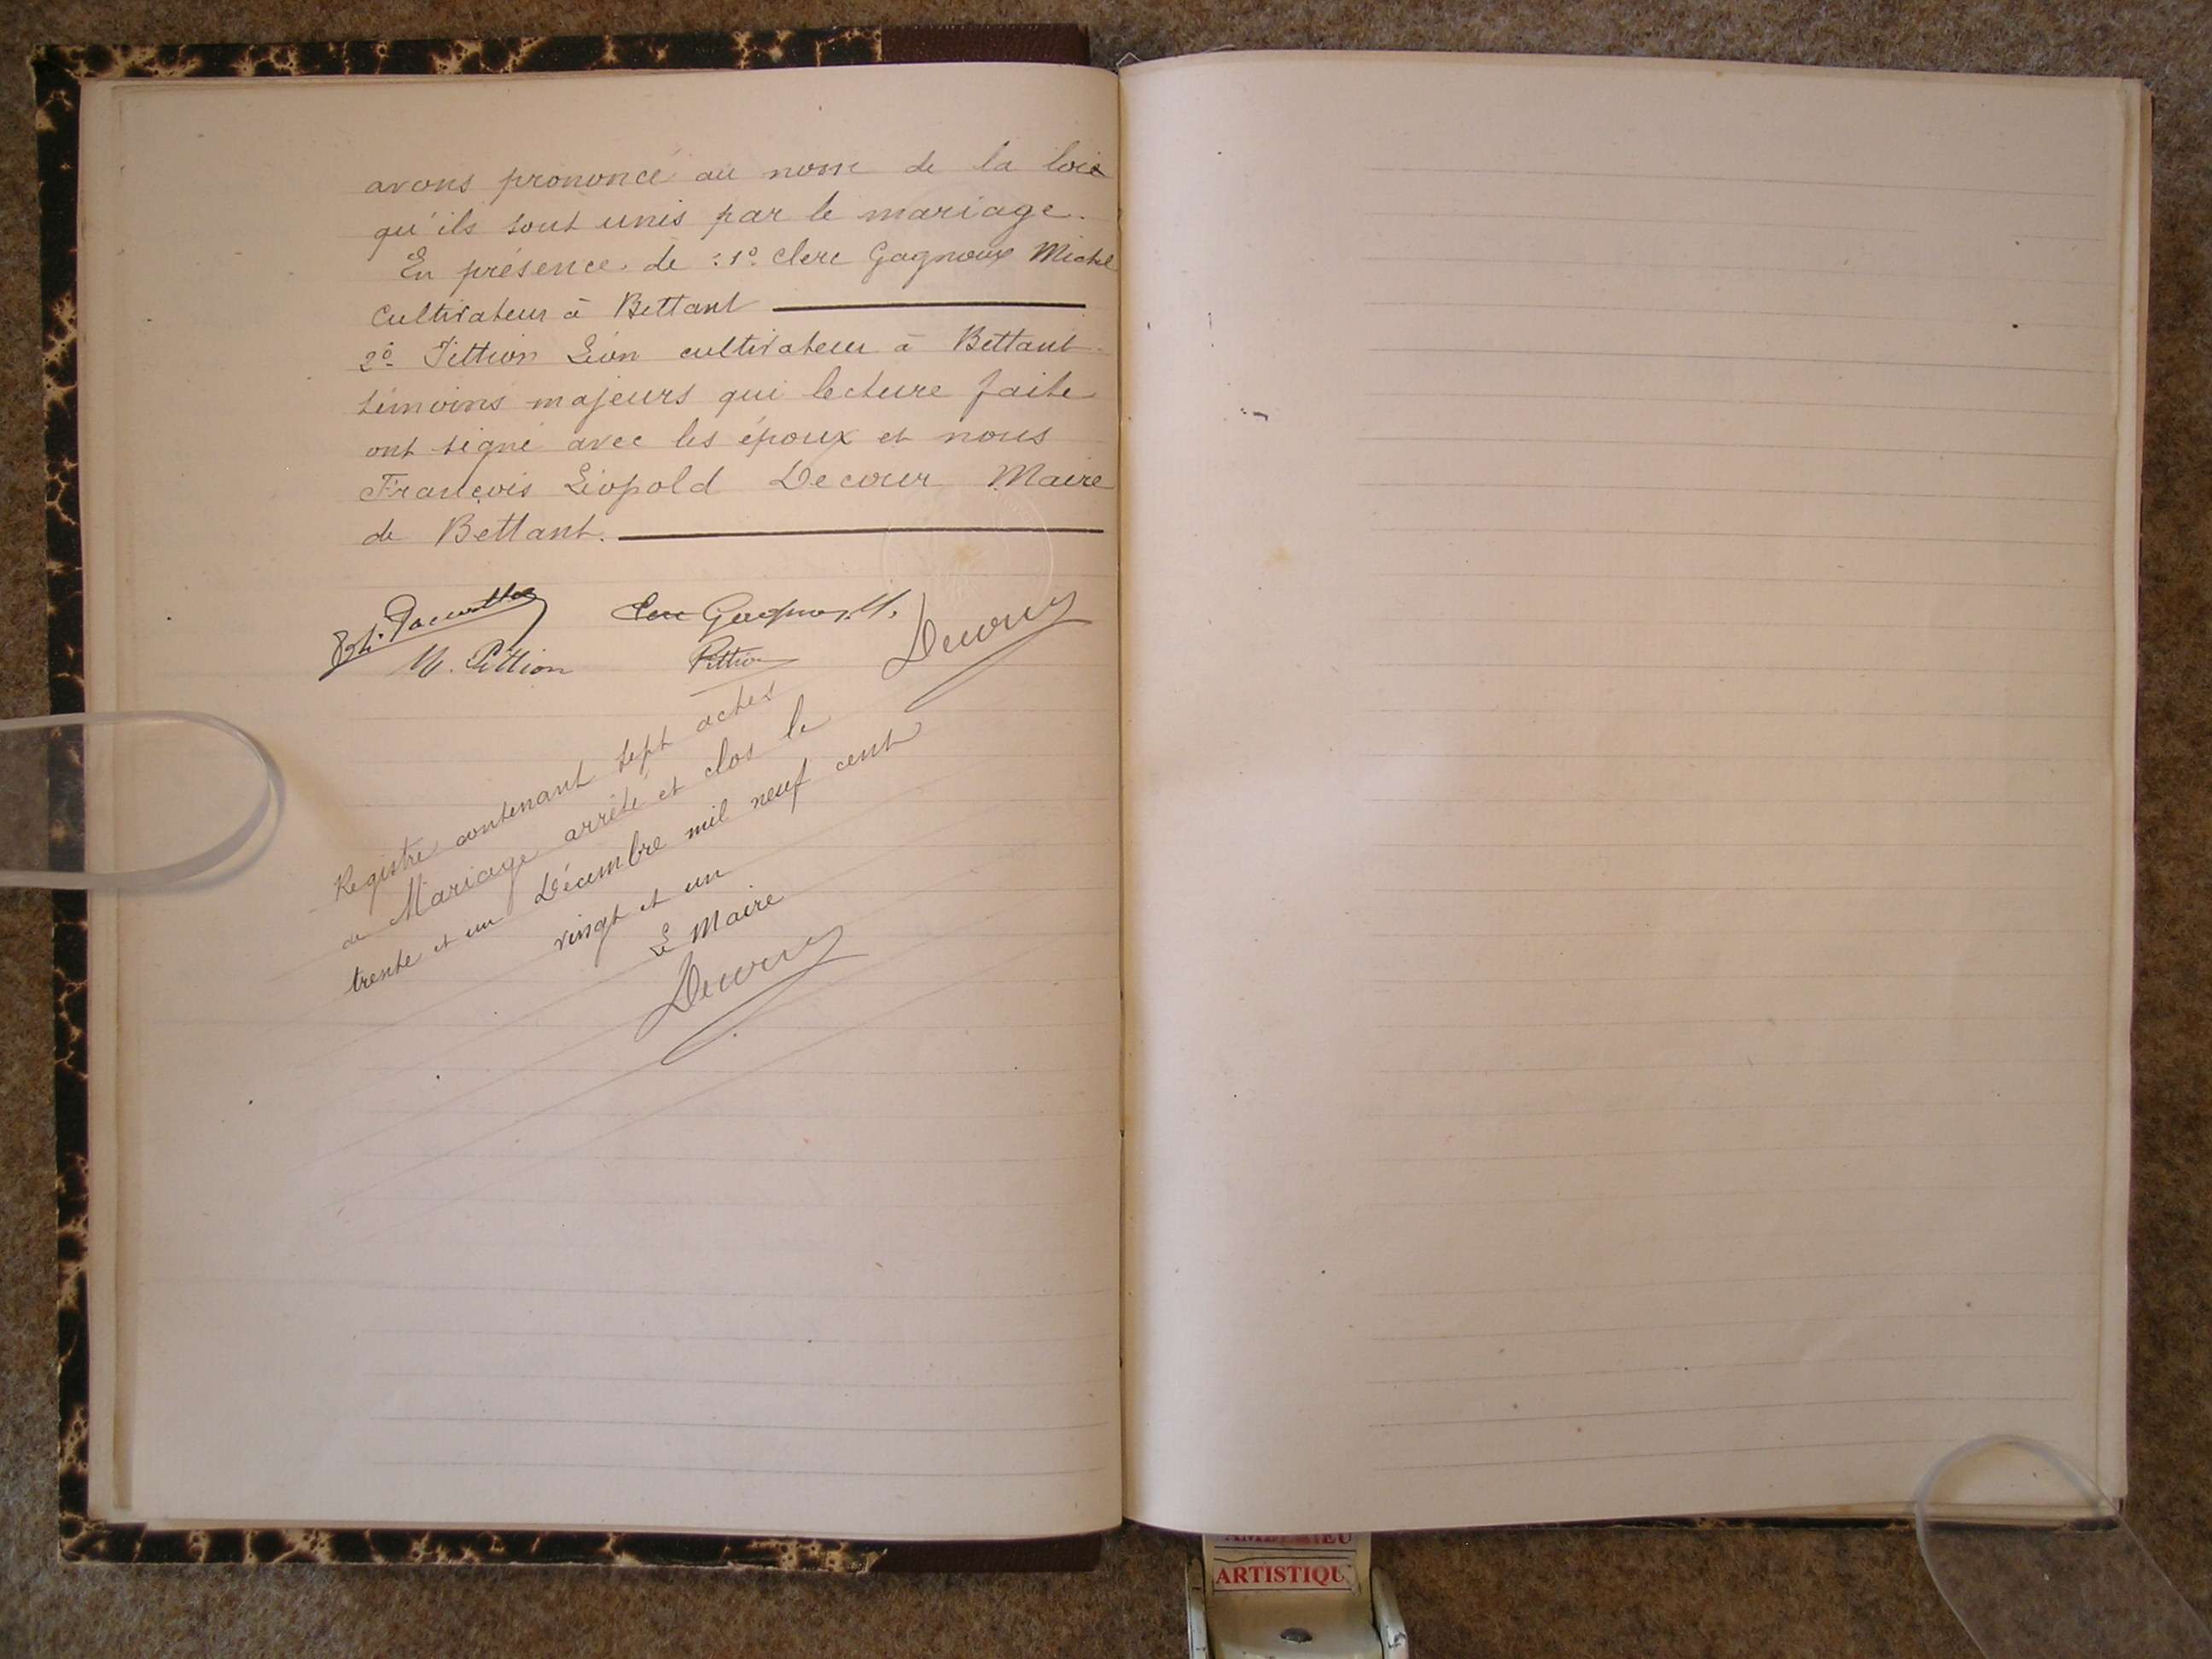 avons prononcé au nom de la loi
qu'ils sont unis par le mariage.
En présence de : 1° Clerc Gagnoux Michel
Cultivateur à Bettant
2° Pittion Léon cultivateur à Bettant
témoins majeurs qui lecture faite
ont signé avec les époux et nous
François Léopold Decour Maire
de Bettant.
Clerc Gagnoux M.
Decour
M. Pittion
Pittion
Registre contenant sept actes
de Mariage arrêté et clos le
trente et un Décembre mil neuf cent
vingt et un
Le Maire
Decour
ARTISTIQU